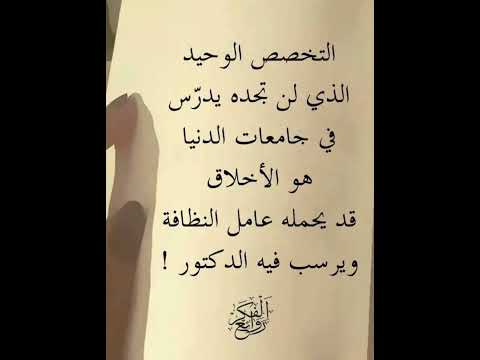 التخصص الوحيد
الذي لن تجده يدرّس
في جامعات الدنيا
هو الأخلاق
قد يحمله عامل النظافة
ويرسب فيه الدكتور !
روائع الفكر